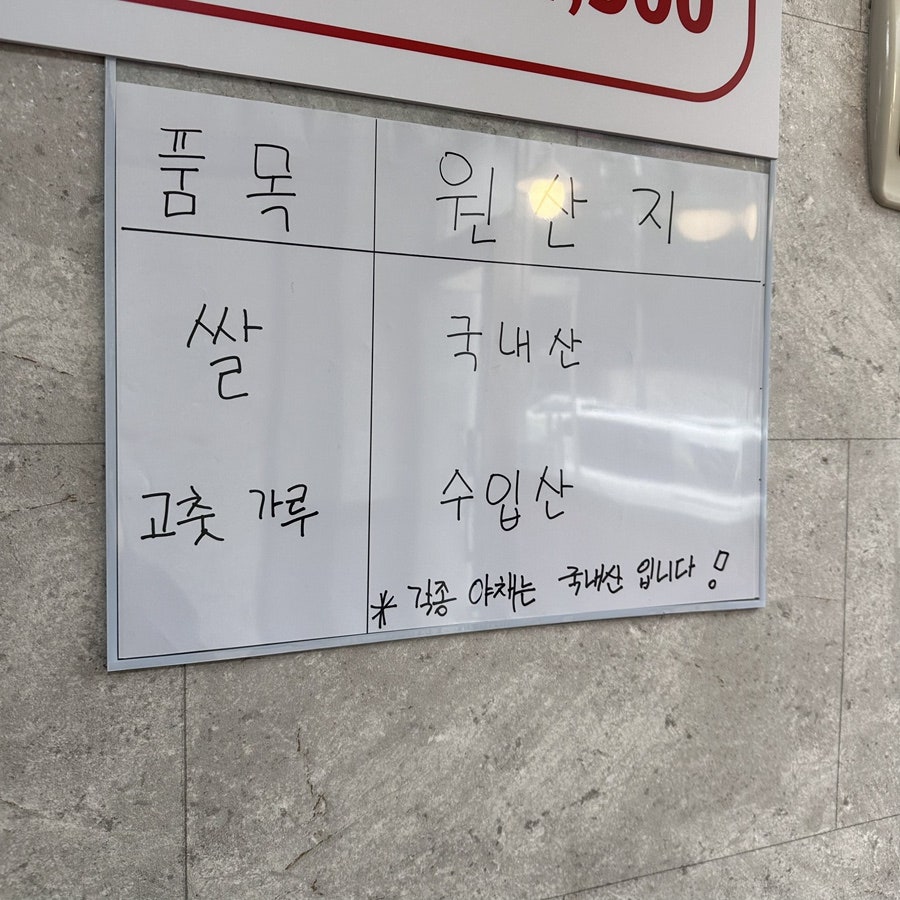 품목 원산지
쌀 국내산
고춧 가루 수입산
* 각종 야채는 국내산 입니다!